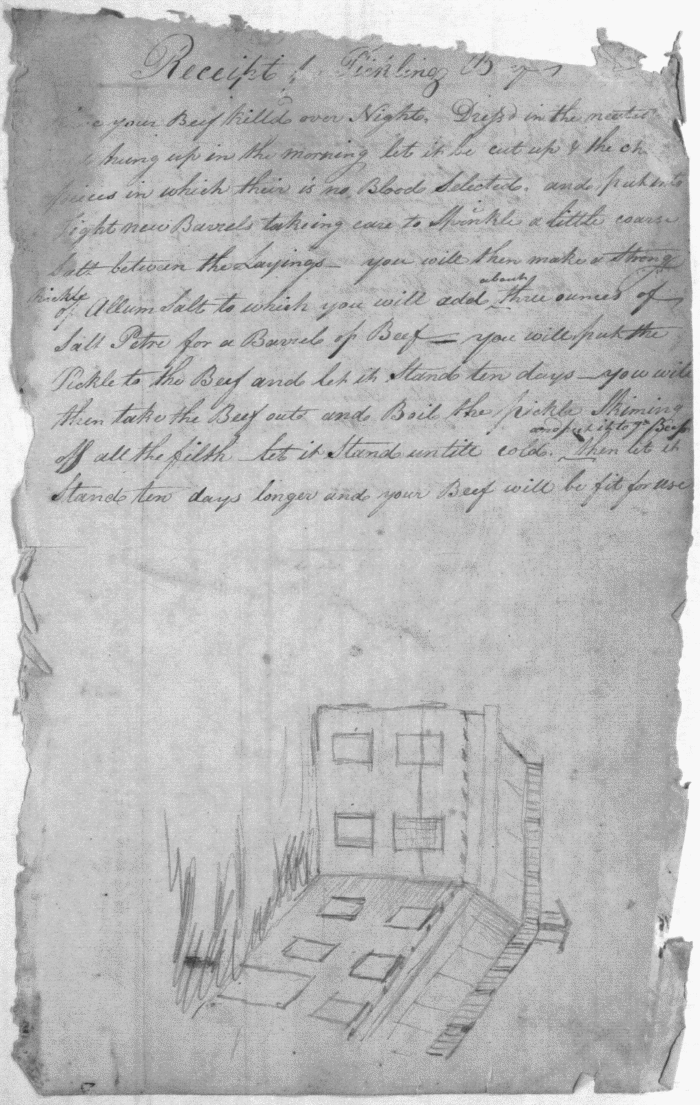 Receipt for Pickling B
your Beef killd over Night. Dress'd in the neatest
hung up in the morning let it be cut up & the ch
pieces in which their is no Blood Selected. and put into
tight new Barrels takeing care to Sprinkle a little coarse
Salt between the Layings — you will then make a strong
Pickle
of Allum Salt to which you will add about three ounces of
Salt Petre for a Barrel of Beef — you will put the
Pickle to the Beef and let it Stand ten days — you will
then take the Beef out and Boil the pickle Skiming
off all the filth let it Stand untill cold. and put it to ye Beef then let it
Stand ten days longer and your Beef will be fit for use